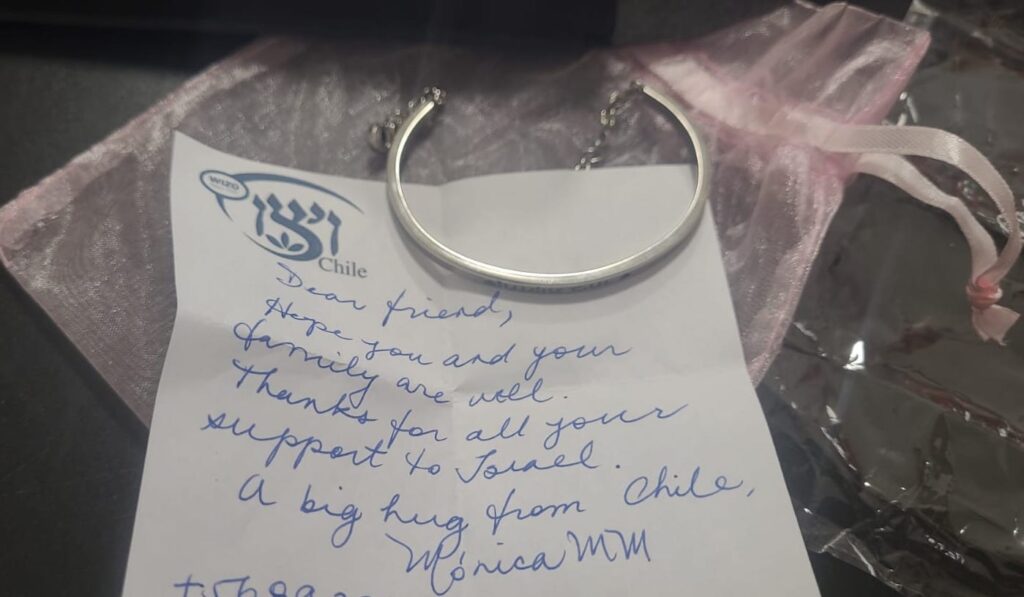 WIZO
ויצו
Chile
Dear friend,
Hope you and your
family are well.
Thanks for all your
support to Israel.
A big hug from Chile,
Mónica MM